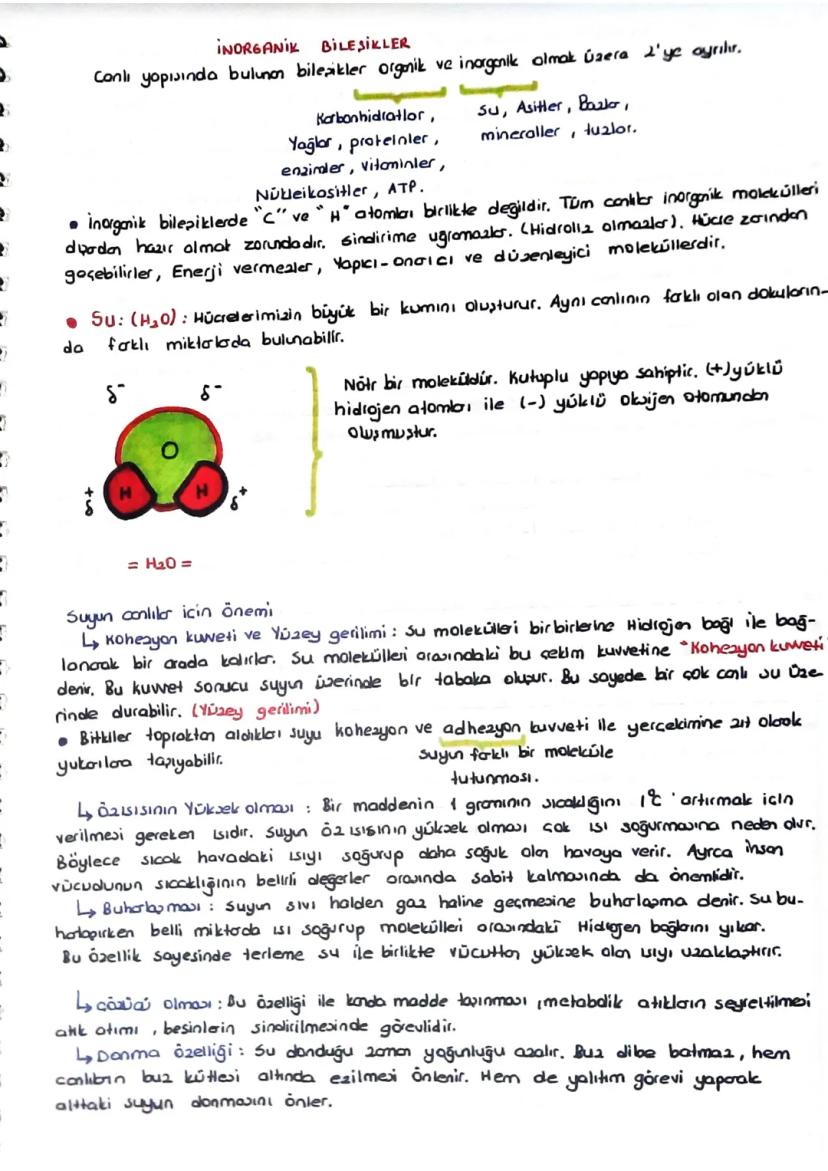 İNORGANİK BİLEŞİKLER
Canlı yapısında bulunan bileşikler organik ve inorganik olmak üzere 2'ye ayrılır.
Karbonhidratlar,
Yağlar, proteinler,
enzimler, vitaminler,
Nükleikasitler, ATP.
su, Asitler, Bazlar,
mineraller, tuzlar.
• İnorganik bileşiklerde "C" ve "H" atomları birlikte değildir. Tüm canlılar inorganik molekülleri
dışardan hazır almak zorundadır. sindirime uğramazlar. (Hidroliz olmazlar). Hücre zarından
geçebilirler, Enerji vermezler, Yapıcı-onarıcı ve düzenleyici moleküllerdir.
• Su: (H₂O): Hücrelerimizin büyük bir kumını oluşturur. Aynı canlının farklı olan dokuların-
da farklı miktarlada bulunabilir.
δ⁻ δ⁻
O
H H
δ⁺ δ⁺
= H₂O =
Nötr bir moleküldür. Kutuplu yapıya sahiptir. (+) yüklü
hidrojen atomları ile (-) yüklü oksijen atomundan
oluşmuştur.
Suyun canlılar için önemi
↳ Kohezyon kuvveti ve Yüzey gerilimi: Su molekülleri birbirlerine Hidrojen bağı ile bağ-
lanarak bir arada kalırlar. Su molekülleri arasındaki bu çekim kuvvetine "Kohezyon kuvveti
denir. Bu kuvvet sonucu suyun üzerinde bir tabaka oluşur. Bu sayede bir çok canlı su üze-
rinde durabilir. (Yüzey gerilimi)
• Bitkiler topraktan aldıkları suyu kohezyon ve adhezyon kuvveti ile yerçekimine zıt olarak
yukarılara taşıyabilir.
suyun farklı bir moleküle
tutunması.
↳ Özısısının Yüksek olması: Bir maddenin 1 gramının sıcaklığını 1°C 'artırmak için
verilmesi gereken ısıdır. Suyun öz ısısının yüksek olması çok ısı soğurmasına neden olur.
Böylece sıcak havadaki ısıyı soğurup daha soğuk olan havaya verir. Ayrca insan
vücudunun sıcaklığının belirli değerler arasında sabit kalmasında da önemlidir.
↳ Buharlaşması: Suyun sıvı halden gaz haline geçmesine buharlaşma denir. Su bu-
harlaşırken belli miktarda ısı soğurup molekülleri arasındaki Hidrojen bağlarını yıkar.
Bu özellik sayesinde terleme su ile birlikte vücuttan yüksek olan ısıyı uzaklaştırır.
↳ çözücü olması: Bu özelliği ile kanda madde taşınması, metabolik atıkların seyreltilmesi
atık atımı, besinlerin sindirilmesinde görevlidir.
↳ Donma özelliği: Su donduğu zaman yoğunluğu azalır. Buz dibe batmaz, hem
canlıların buz kütlesi altında ezilmesi önlenir. Hem de yalıtım görevi yaparak
alttaki suyun donmasını önler.